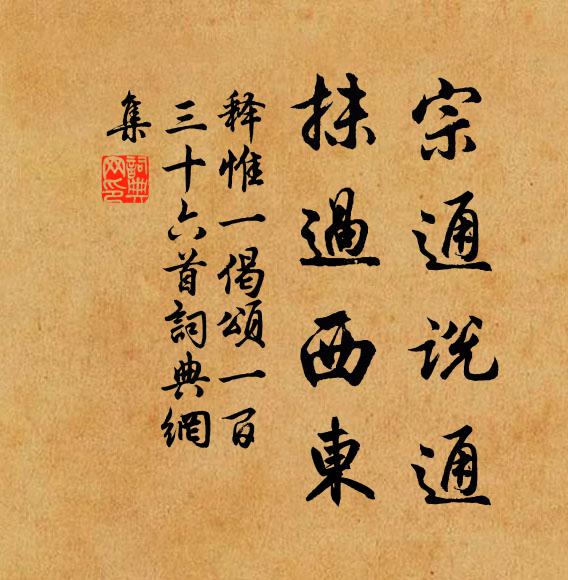 宗通说通
抹過西東
释惟一偈頌一百
三十六首詞典網
集
詞典網印